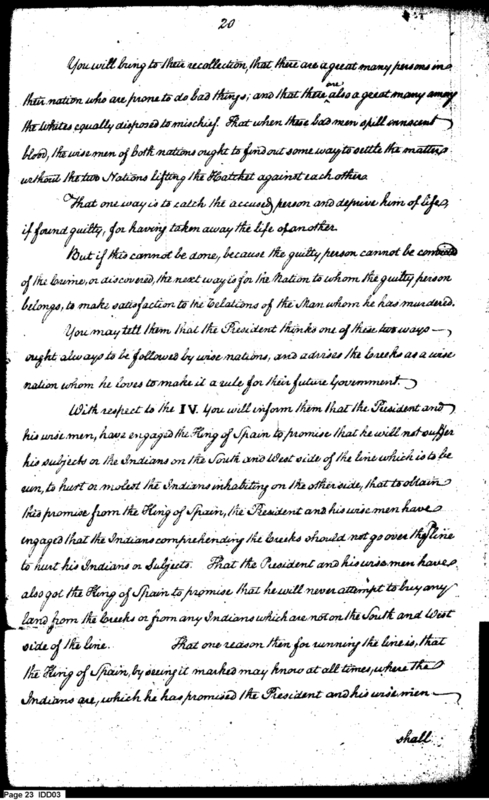 20
You will bring to their recollection, that there are a great many persons in
their nation who are prone to do bad things; and that there are also a great many among
the whites equally disposed to mischief. That when these bad men spill innocent
blood, the wise men of both nations ought to find out some way to settle the matter,
without the two Nations lifting the Hatchet against each other.
That one way is to catch the accused person and deprive him of life,
if found guilty, for having taken away the life of another.
But if this cannot be done, because the guilty person cannot be convicted
of the Crime, or discovered, the next way is for the Nation to whom the guilty person
belongs, to make satisfaction to the Relations of the Man whom he has murdered.
You may tell them that the President thinks one of these two ways
ought always to be followed by wise nations, and advises the Creeks as a wise
nation whom he loves to make it a rule for their future Government.
With respect to the IV. You will inform them that the President and
his wise men, have engaged the King of Spain to promise that he will not suffer
his subjects or the Indians on the South and West side of the line which is to be
run, to hurt or molest the Indians inhabiting on the other side, that to obtain
this promise from the King of Spain, the President and his wise men have
engaged that the Indians comprehending the Creeks should not go over the line
to hurt his Indians or Subjects. That the President and his wise men have
also got the King of Spain to promise that he will never attempt to buy any
land from the Creeks or from any Indians which are not on the South and West
side of the line. That one reason then for running the line is, that
the King of Spain, by seeing it marked may know at all times, where the
Indians are, which he has promised the President and his wise men
shall
Page 23 IDD03